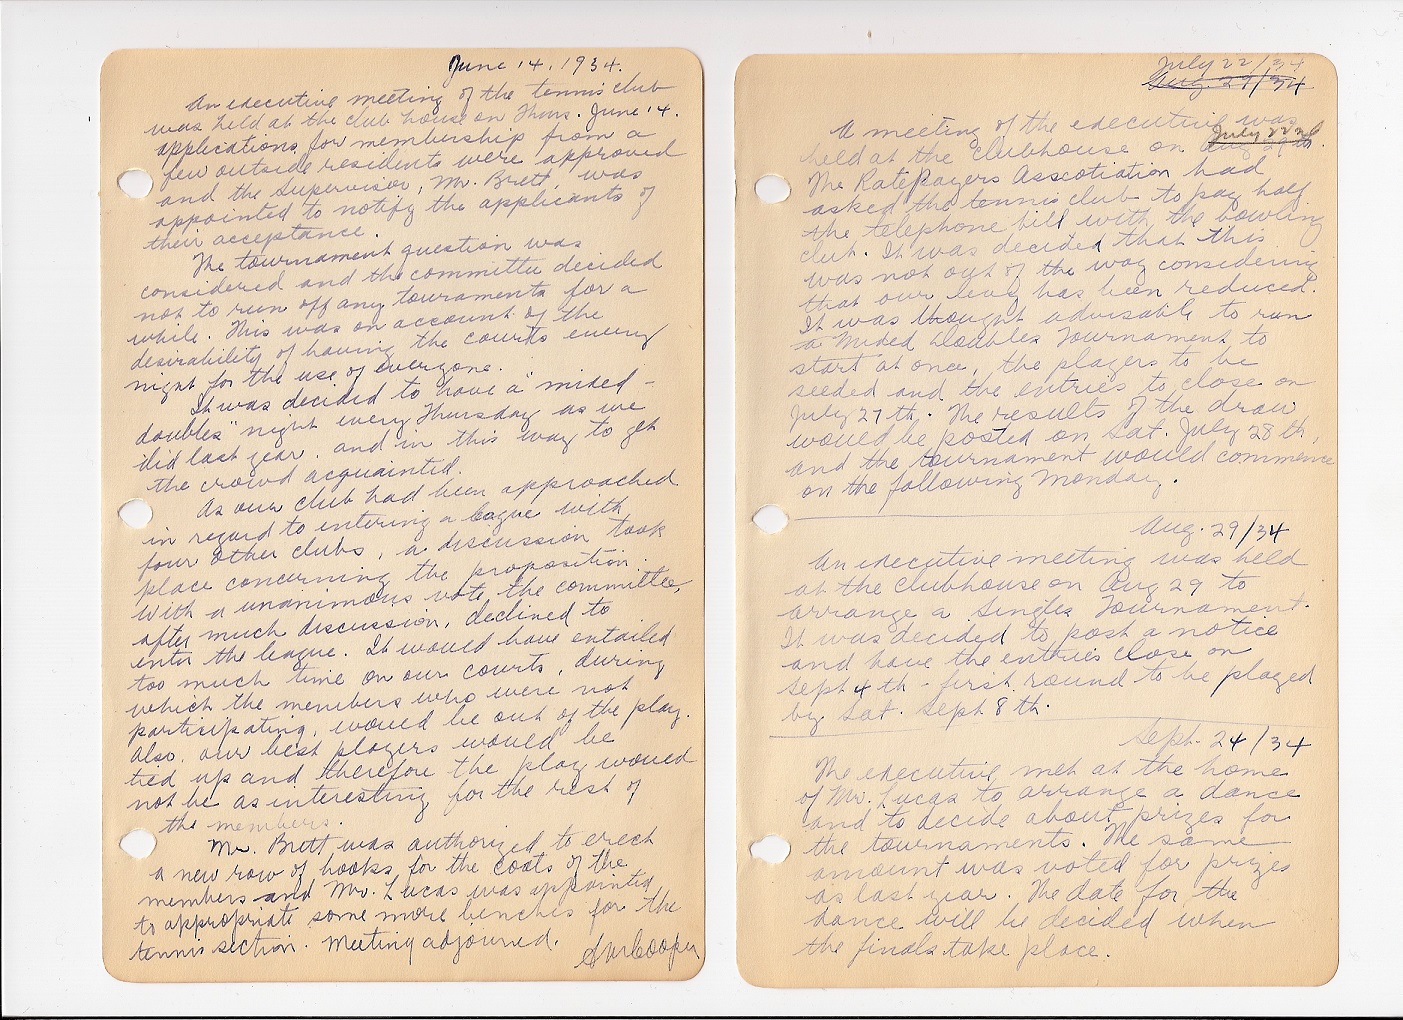 June 14, 1934.
An executive meeting of the tennis club
was held at the club house on Thurs. June 14.
applications for membership from a
few outside residents were approved
and the Supervisor, Mr. Brett, was
appointed to notify the applicants of
their acceptance.
The tournament question was
considered and the committee decided
not to run off any touraments for a
while. This was on account of the
desirability of having the courts every
night for the use of everyone.
It was decided to have a "mixed-
doubles" night every Thursday as we
did last year, and in this way to get
the crowd acquainted.
As our club had been approached
in regard to entering a league with
four other clubs, a discussion took
place concerning the proposition.
With a unanimous vote, the committee,
after much discussion, declined to
enter the league. It would have entailed
too much time on our courts, during
which the members who were not
participating, would be out of the play.
Also, our best players would be
tied up and therefore the play would
not be as interesting for the rest of
the members.
Mr. Brett was authorized to erect
a new row of hooks for the coats of the
members and Mr. Lucas was appointed
to appropriate some more benches for the
tennis section. Meeting adjourned.
Cooper
July 22/34
Aug. 29/34
A meeting of the executive was
July 22nd
held at the clubhouse on Aug 29th.
The RatePayers Asscotiation had
asked the tennis club to pay half
the telephone bill with the bowling
club. It was decided that this
was not out of the way considering
that our levy has been reduced.
It was thought advisable to run
a Mixed Doubles Tournament to
start at once, the players to be
seeded and the entries to close on
July 27th. The results of the draw
would be posted on Sat. July 28th,
and the tournament would commence
on the following Monday.
Aug. 29/34
An executive meeting was held
at the clubhouse on Aug 29 to
arrange a Singles Tournament.
It was decided to post a notice
and have the entries close on
Sept 4th - first round to be played
by Sat. Sept 8th.
Sept. 24/34
The executive met at the home
of Mr. Lucas to arrange a dance
and to decide about prizes for
the tournaments. The same
amount was voted for prizes
as last year. The date for the
dance will be decided when
the finals take place.